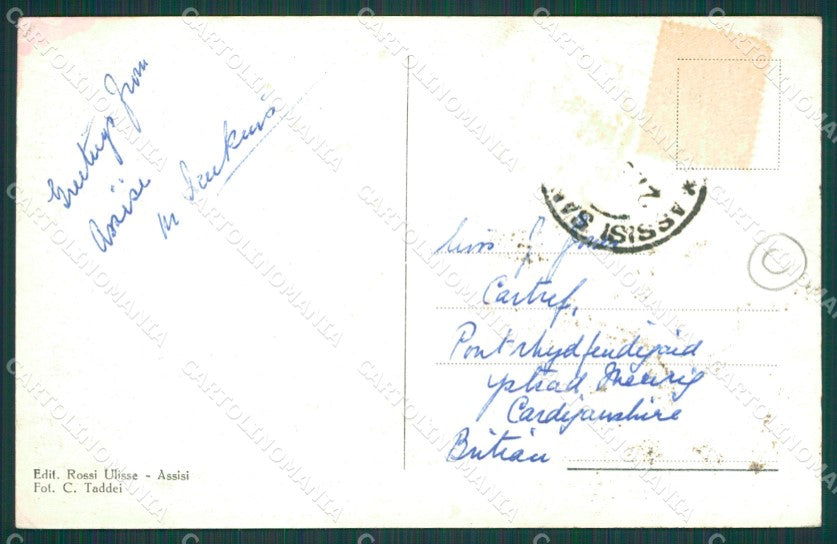 Greetings from
Assise
M Jenkins
ASSISI
Miss J Jones
Cartref,
Pontrhydfendigaid
Ystrad Meurig
Cardiganshire
Britian
Edit. Rossi Ulisse - Assisi
Fot. C. Taddei
CARTOLINOMANIA